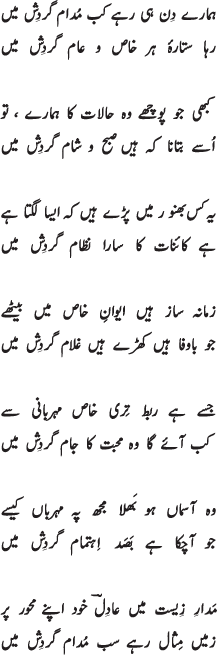 ہمارے دِن ہی رہے کب مُدام گردِش میں
رہا ستارۂ ہر خاص و عام گردِش میں
کبھی جو پوچھے وہ حالات کا ہمارے ، تو
اُسے بتانا کہ ہیں صبح و شام گردِش میں
یہ کس بھنور میں پڑے ہیں کہ ایسا لگتا ہے
ہے کائنات کا سارا نظام گردِش میں
زمانہ ساز ہیں ایوانِ خاص میں بیٹھے
جو باوفا ہیں کھڑے ہیں غلام گردِش میں
جسے ہے ربط تِری خاص مہربانی سے
کب آئے گا وہ محبت کا جام گردِش میں
وہ آسماں ہو بَھلا مجھ پہ مہرباں کیسے
جو آچکا ہے بَصَد اِہتمام گردِش میں
مَدارِ زیست میں عادِلؔ خود اپنے محور پر
زمیں مِثال رہے سب مُدام گردِش میں